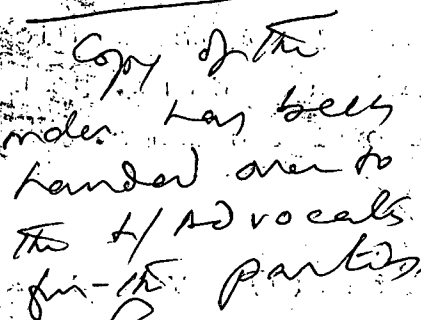 Copy of the
order has been
handed over to
the L/Advocates
for the parties